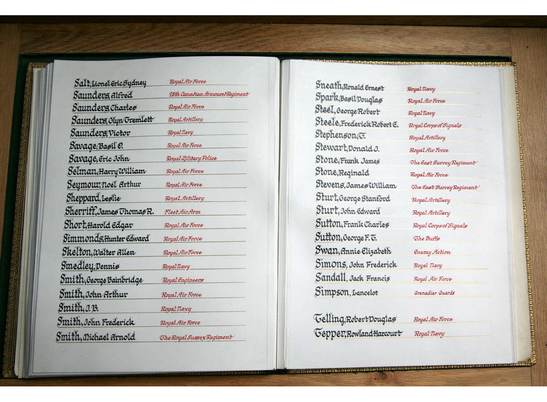 Salt, Lionel Eric Sydney Royal Air Force
Saunders, Alfred 28th Canadian Armoured Regiment
Saunders, Charles Royal Air Force
Saunders, Olyn Gremlett Royal Artillery
Saunders, Victor Royal Navy
Savage, Basil E. Royal Air Force
Savage, Eric John Royal Military Police
Selman, Harry William Royal Air Force
Seymour, Noel Arthur Royal Air Force
Sheppard, Leslie Royal Artillery
Sherriff, James Thomas R. Fleet Air Arm
Short, Harold Edgar Royal Air Force
Simmonds, Hunter Edward Royal Air Force
Skelton, Walter Allen Royal Air Force
Smedley, Dennis Royal Navy
Smith, George Bainbridge Royal Engineers
Smith, John Arthur Royal Air Force
Smith, J. Royal Navy
Smith, John Frederick Royal Air Force
Smith, Michael Arnold The Royal Sussex Regiment
Sneath, Ronald Ernest Royal Navy
Spark, Basil Douglas Royal Air Force
Steel, George Robert Royal Navy
Steele, Frederick Robert E. Royal Corps of Signals
Stephenson, Royal Artillery
Stewart, Donald J. Royal Air Force
Stone, Frank James The East Surrey Regiment
Stone, Reginald Royal Air Force
Stevens, James William The East Surrey Regiment
Sturt, George Stanford Royal Artillery
Sturt, John Edward Royal Artillery
Sutton, Frank Charles Royal Corps of Signals
Sutton, George F. T. The Buffs
Swan, Annie Elizabeth Enemy Action
Simons, John Frederick Royal Navy
Sandall, Jack Francis Royal Air Force
Simpson, Lancelot Grenadier Guards
Telling, Robert Douglas Royal Air Force
Tepper, Rowland Harcourt Royal Navy